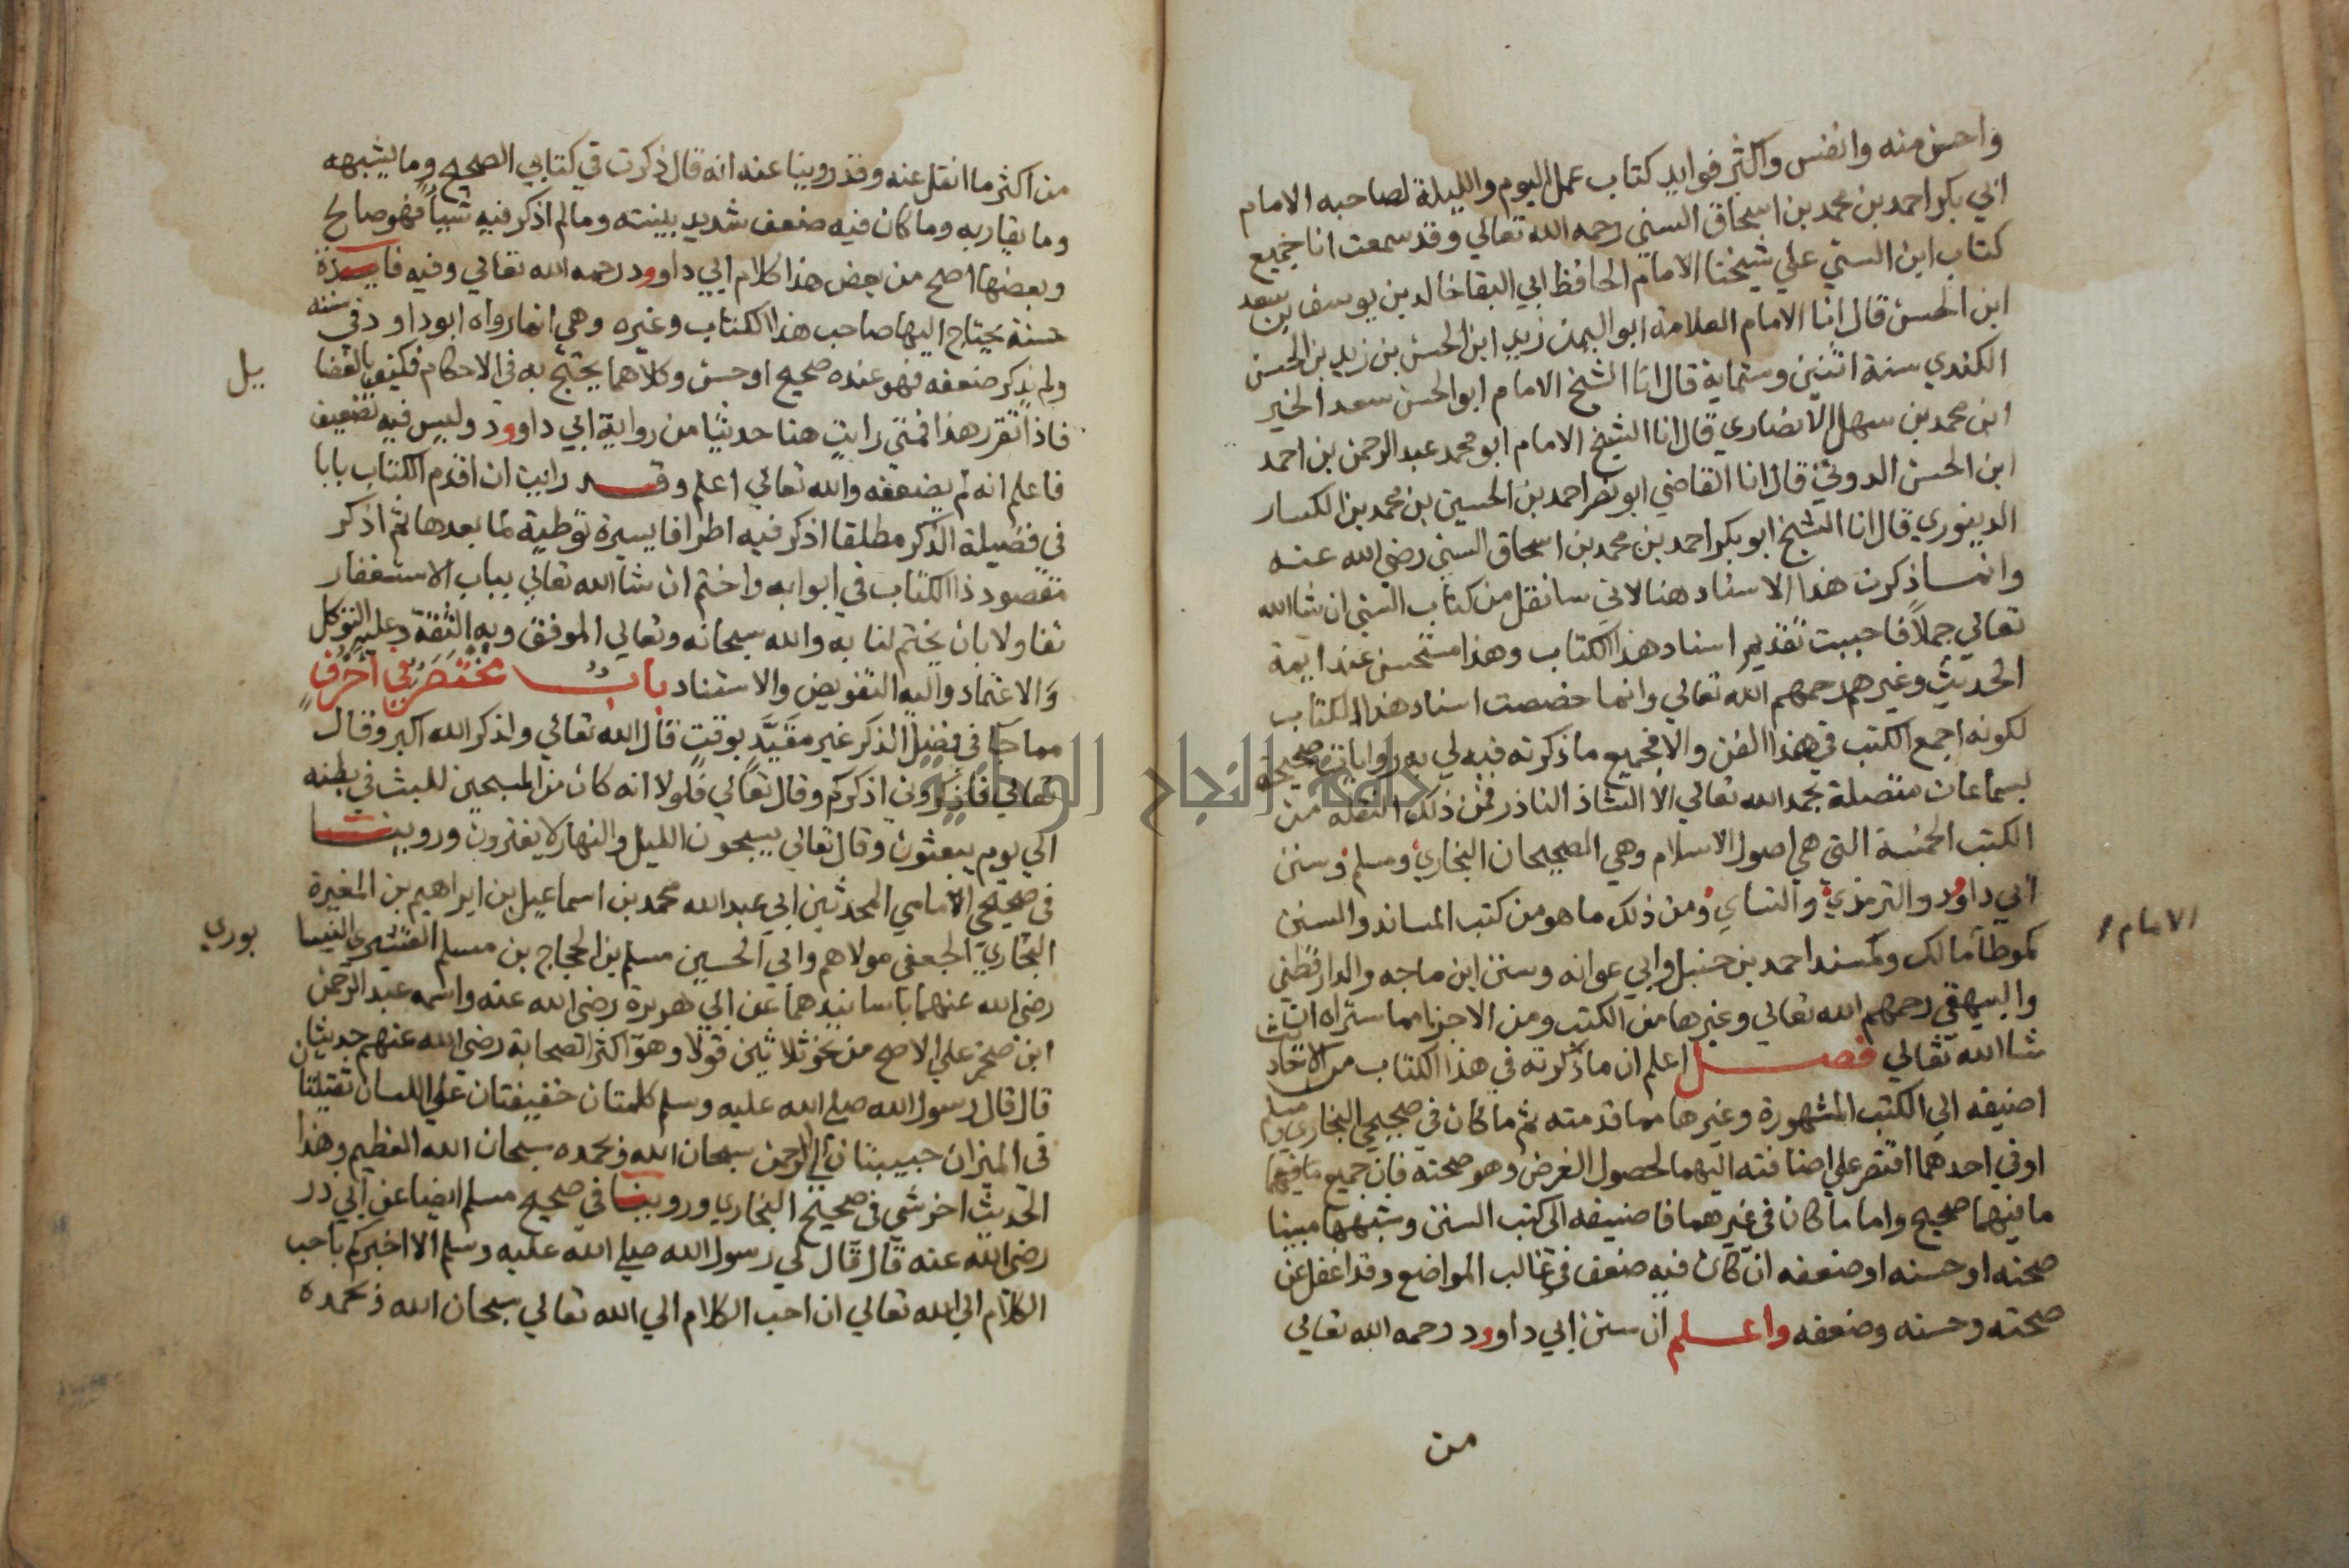 واحسن منه وانفس واكثر فوايد كتاب عمل اليوم والليلة لصاحبه الامام
ابي بكر احمد بن محمد بن اسحاق السني رحمه الله تعالي وقد سمعت انا جميع
كتاب ابن السني علي شيخنا الامام الحافظ ابي البقا خالد بن يوسف بن سعد
ابن الحسن قال انا الامام العلامة ابو اليمن زيد ابن الحسن بن زيد بن الحسن
الكندي سنة اثنين وستماية قال انا الشيخ الامام ابو الحسن سعد الخير
ابن محمد بن سهل الانصاري قال انا الشيخ الامام ابو محمد عبد الرحمن بن احمد
ابن الحسن الدوني قال انا القاضي ابو نصر احمد بن الحسين بن محمد بن الكسار
الدينوري قال انا الشيخ ابو بكر احمد بن محمد بن اسحاق السني رضي الله عنه
وانما ذكرت هذا الاسناد هنا لاني سانقل من كتاب السني ان شا الله
تعالي جملا فاحببت تقديم اسناد هذا الكتاب وهذا مستحسن عند ايمة
الحديث وغيرهم رحمهم الله تعالي وانما خصصت اسناد هذا الكتاب
لكونه اجمع الكتب في هذا الفن والا فجميع ما ذكرته فيه لي به روايات صحيحة
بسماعات متصلة بحمد الله تعالي الا الشاذ النادر فمن ذلك انقله من
الكتب الخمسة التي هي اصول الاسلام وهي الصحيحان البخاري ومسلم وسنن
ابي داود والترمذي والنساي ومن ذلك ما هو من كتب المساند والسنن
كموطا مالك وكمسند احمد بن حنبل وابي عوانه وسنن ابن ماجه والدارقطني
الامام
والبيهقي رحمهم الله تعالي وغيرها من الكتب ومن الاجزا مما ستراه ان
شا الله تعالي فصل اعلم ان ما ذكرته في هذا الكتاب من الاحاديث
اضيفه الي الكتب المشهورة وغيرها مما قدمته ثم ما كان في صحيحي البخاري ومسلم
او في احدهما اقتصر علي اضافته اليهما لحصول الغرض وهو صحته فان جميع ما فيهما
ما فيهما صحيح واما ما كان في غيرهما فاضيفه الي كتب السنن وشبهها مبينا
صحته او حسنه او ضعفه ان كان فيه ضعف في غالب المواضع وقد اغفل عن
صحته وحسنه وضعفه واعلم ان سنن ابي داوود رحمه الله تعالي
من
من اكثر ما انقل عنه وقد روينا عنه انه قال ذكرت في كتابي الصحيح وما يشبهه
وما يقاربه وما كان فيه ضعف شديد بينته وما لم اذكر فيه شيا فهو صالح
وبعضها اصح من بعض هذا كلام ابي داوود رحمه الله تعالي وفيه فايدة
حسنة يحتاج اليها صاحب هذا الكتاب وغيره وهي انما رواه ابو داود في سننه
ولم يذكر ضعفه فهو عنده صحيح او حسن وكلاهما يحتج به في الاحكام فكيف بالفضا
يل
فاذا تقرر هذا فمتي رايت هنا حديثا من رواية ابي داوود وليس فيه تضعيف
فاعلم انه لم يضعفه والله تعالي اعلم وقد رايت ان اقدم الكتاب بابا
في فضيلة الذكر مطلقا اذكر فيه اطرافا يسيرة توطية لما بعدها ثم اذكر
مقصود ذا الكتاب في ابوابه واختم ان شا الله تعالي بباب الاستغفار
تفاولا بان يختم لنا به والله سبحانه وتعالي الموفق وبه الثقة وعليه التوكل
والاعتماد واليه التفويض والاستناد باب مختصر في احرف
مما جا في فضل الذكر غير مقيد بوقت قال الله تعالي ولذكر الله اكبر وقال
تعالي فاذكروني اذكركم وقال تعالي فلولا انه كان من المسبحين للبث في بطنه
الي يوم يبعثون وقال تعالي يسبحون الليل والنهار لا يفترون وروينا
في صحيحي الامامي المحدثين ابي عبد الله محمد بن اسماعيل بن ابراهيم بن المغيرة
البخاري الجعفي مولاهم وابي الحسين مسلم بن الحجاج بن مسلم القشيري النيسا
بوري
رضي الله عنهما باسانيدهما عن ابي هريرة رضي الله عنه واسمه عبد الرحمن
ابن صخر علي الاصح من نحو ثلاثين قولا وهو اكثر الصحابة رضي الله عنهم حديثا
قال قال رسول الله صلي الله عليه وسلم كلمتان خفيفتان علي اللسان ثقيلتان
في الميزان حبيبتان الي الرحمن سبحان الله وبحمده سبحان الله العظيم وهذا
الحديث اخر شي في صحيح البخاري وروينا في صحيح مسلم ايضا عن ابي ذر
رضي الله عنه قال قال لي رسول الله صلي الله عليه وسلم الا اخبركم باحب
الكلام الي الله تعالي ان احب الكلام الي الله تعالي سبحان الله وبحمده
جامعة النجاح الوطنية